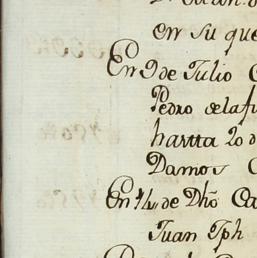 en su que
En 9 de Julio
Pedro dela fu
hartta 20 d
Damos
En 14 de Dho̅ Ca
Juan Jph